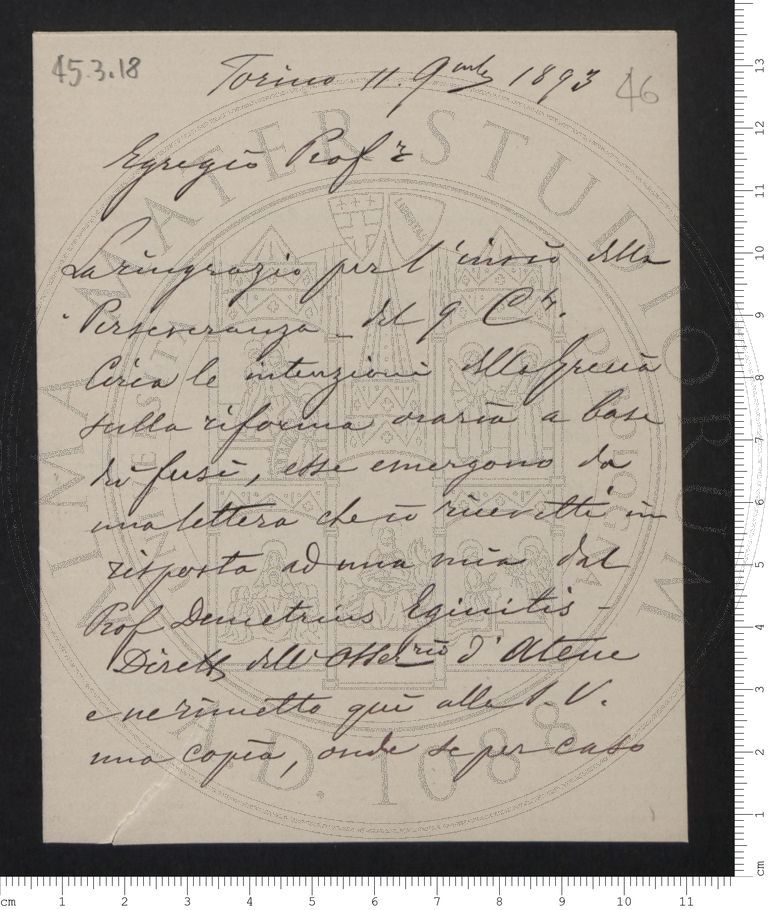 45.3.18
Torino 11. 9mbre 1893
46
Egregio Prof.r
La ringrazio per l'invio della
Perseveranza - del 9 Cte.
Circa le intenzioni della Grecia
sulla riforma oraria a base
di fusi, esse emergono da
una lettera che io ricevetti in
risposta ad una mia dal
Prof Demetrius Eginitis -
Dirett dell'Osserrio d'Atene
e ne rimetto qui alla S. V.
una copia, onde se per caso
ALMA MATER STUDIORUM
A.D. 1088
LIBERTAS
cm 1 2 3 4 5 6 7 8 9 10 11
13
12
11
10
9
8
7
6
5
4
3
2
1
cm